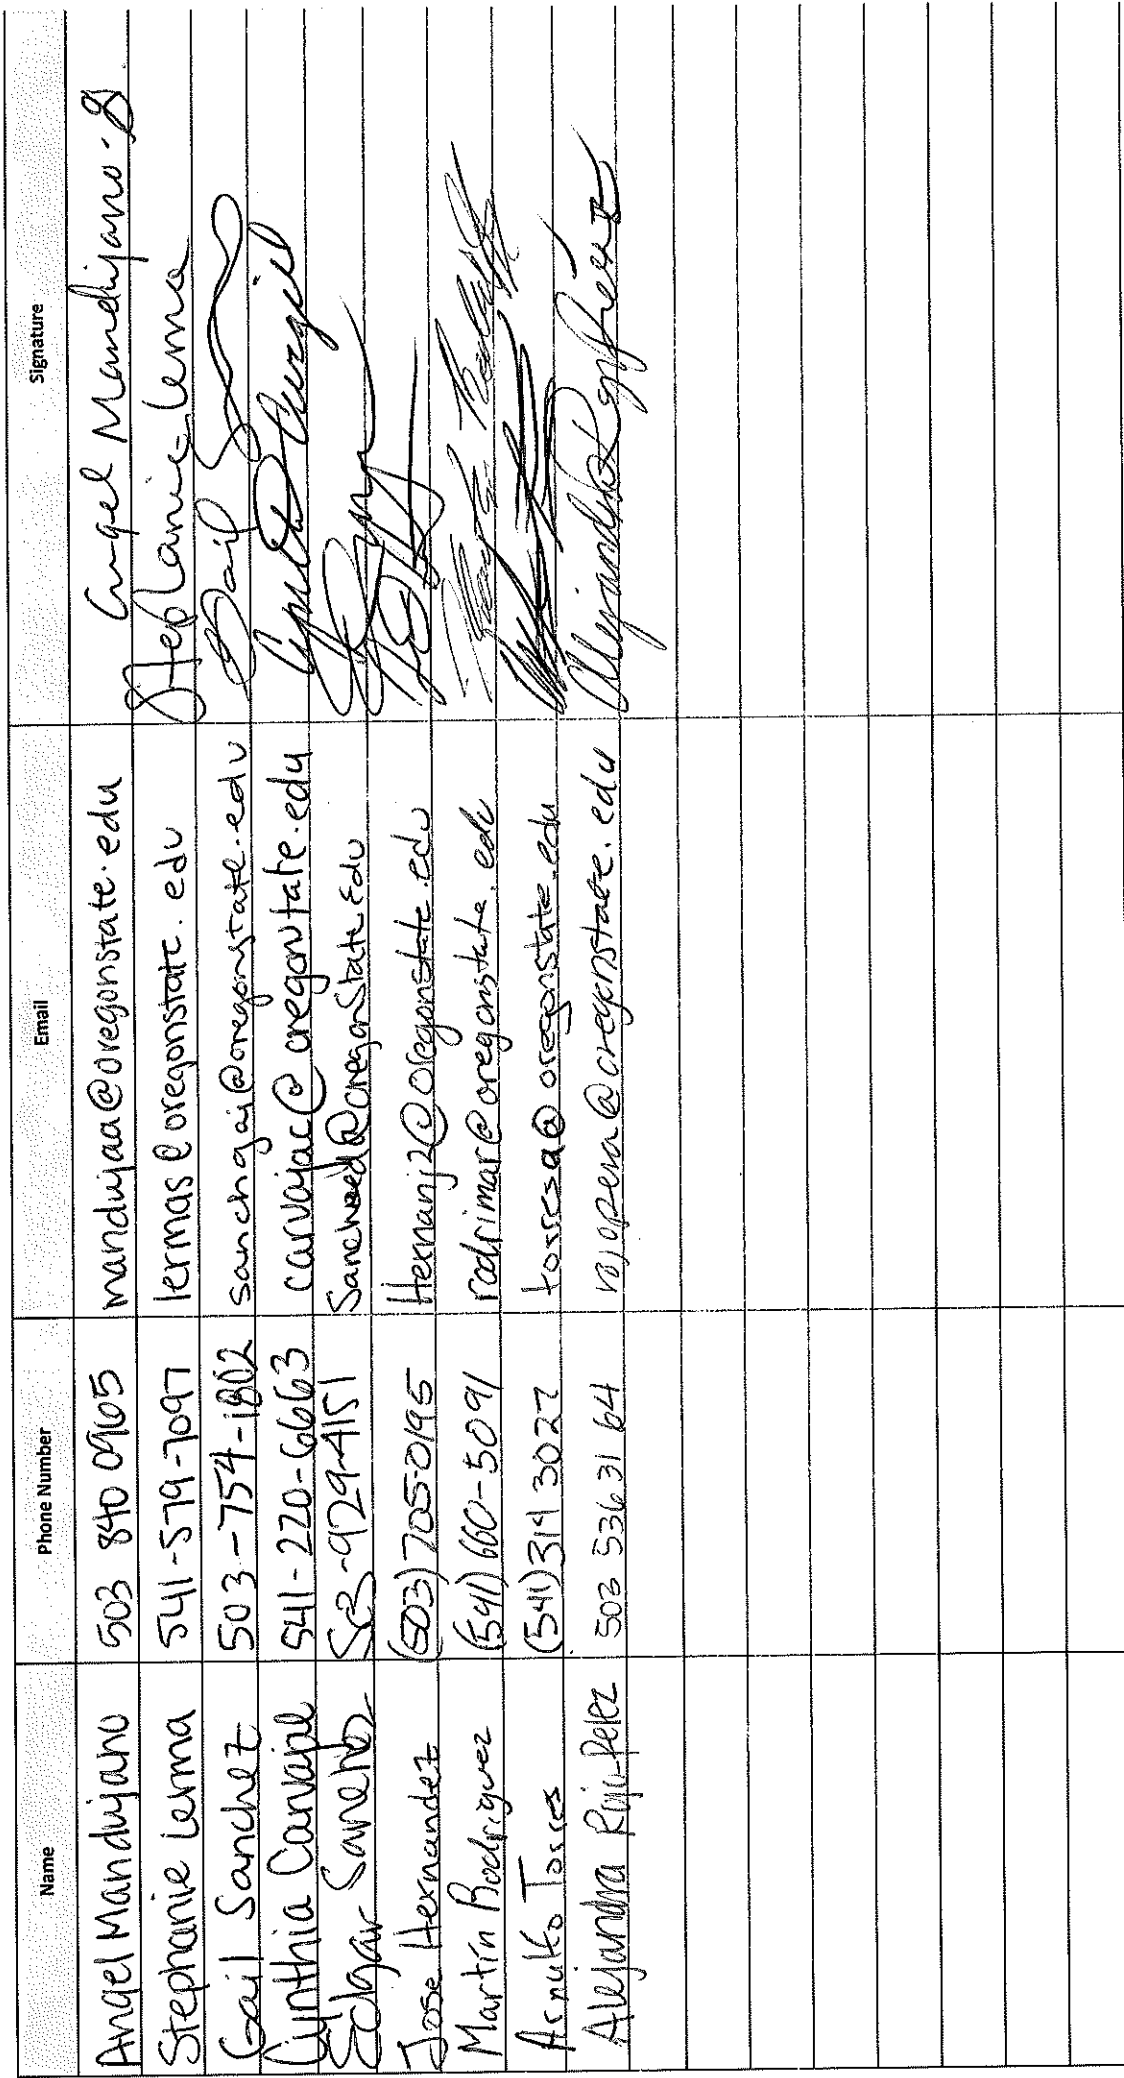 Name Phone Number Email Signature
Angel Mandujano 503 840 0965 mandujaa@oregonstate.edu Angel Mandujano-G
Stephanie Lerma 541-579-7097 lermas@oregonstate.edu Stephanie Lerma
Gail Sanchez 503-754-1802 sanchgai@oregonstate.edu Gail S
Cynthia Carvajal 541-220-6663 carvajac@oregontate.edu Cynthia Carvajal
Edgar Sanchez 503-929-4151 @oregonState Edu
Jose Hernandez (503)705-0195 Hernanj2@oregonstate.edu
Martín Rodriguez (541)660-5091 rodrimar@oregonstate.edu
Torres (541)314 3027 torresa@oregonstate.edu
Alejandra 503 536 31 64 rojopera@oregonstate.edu Alejandra